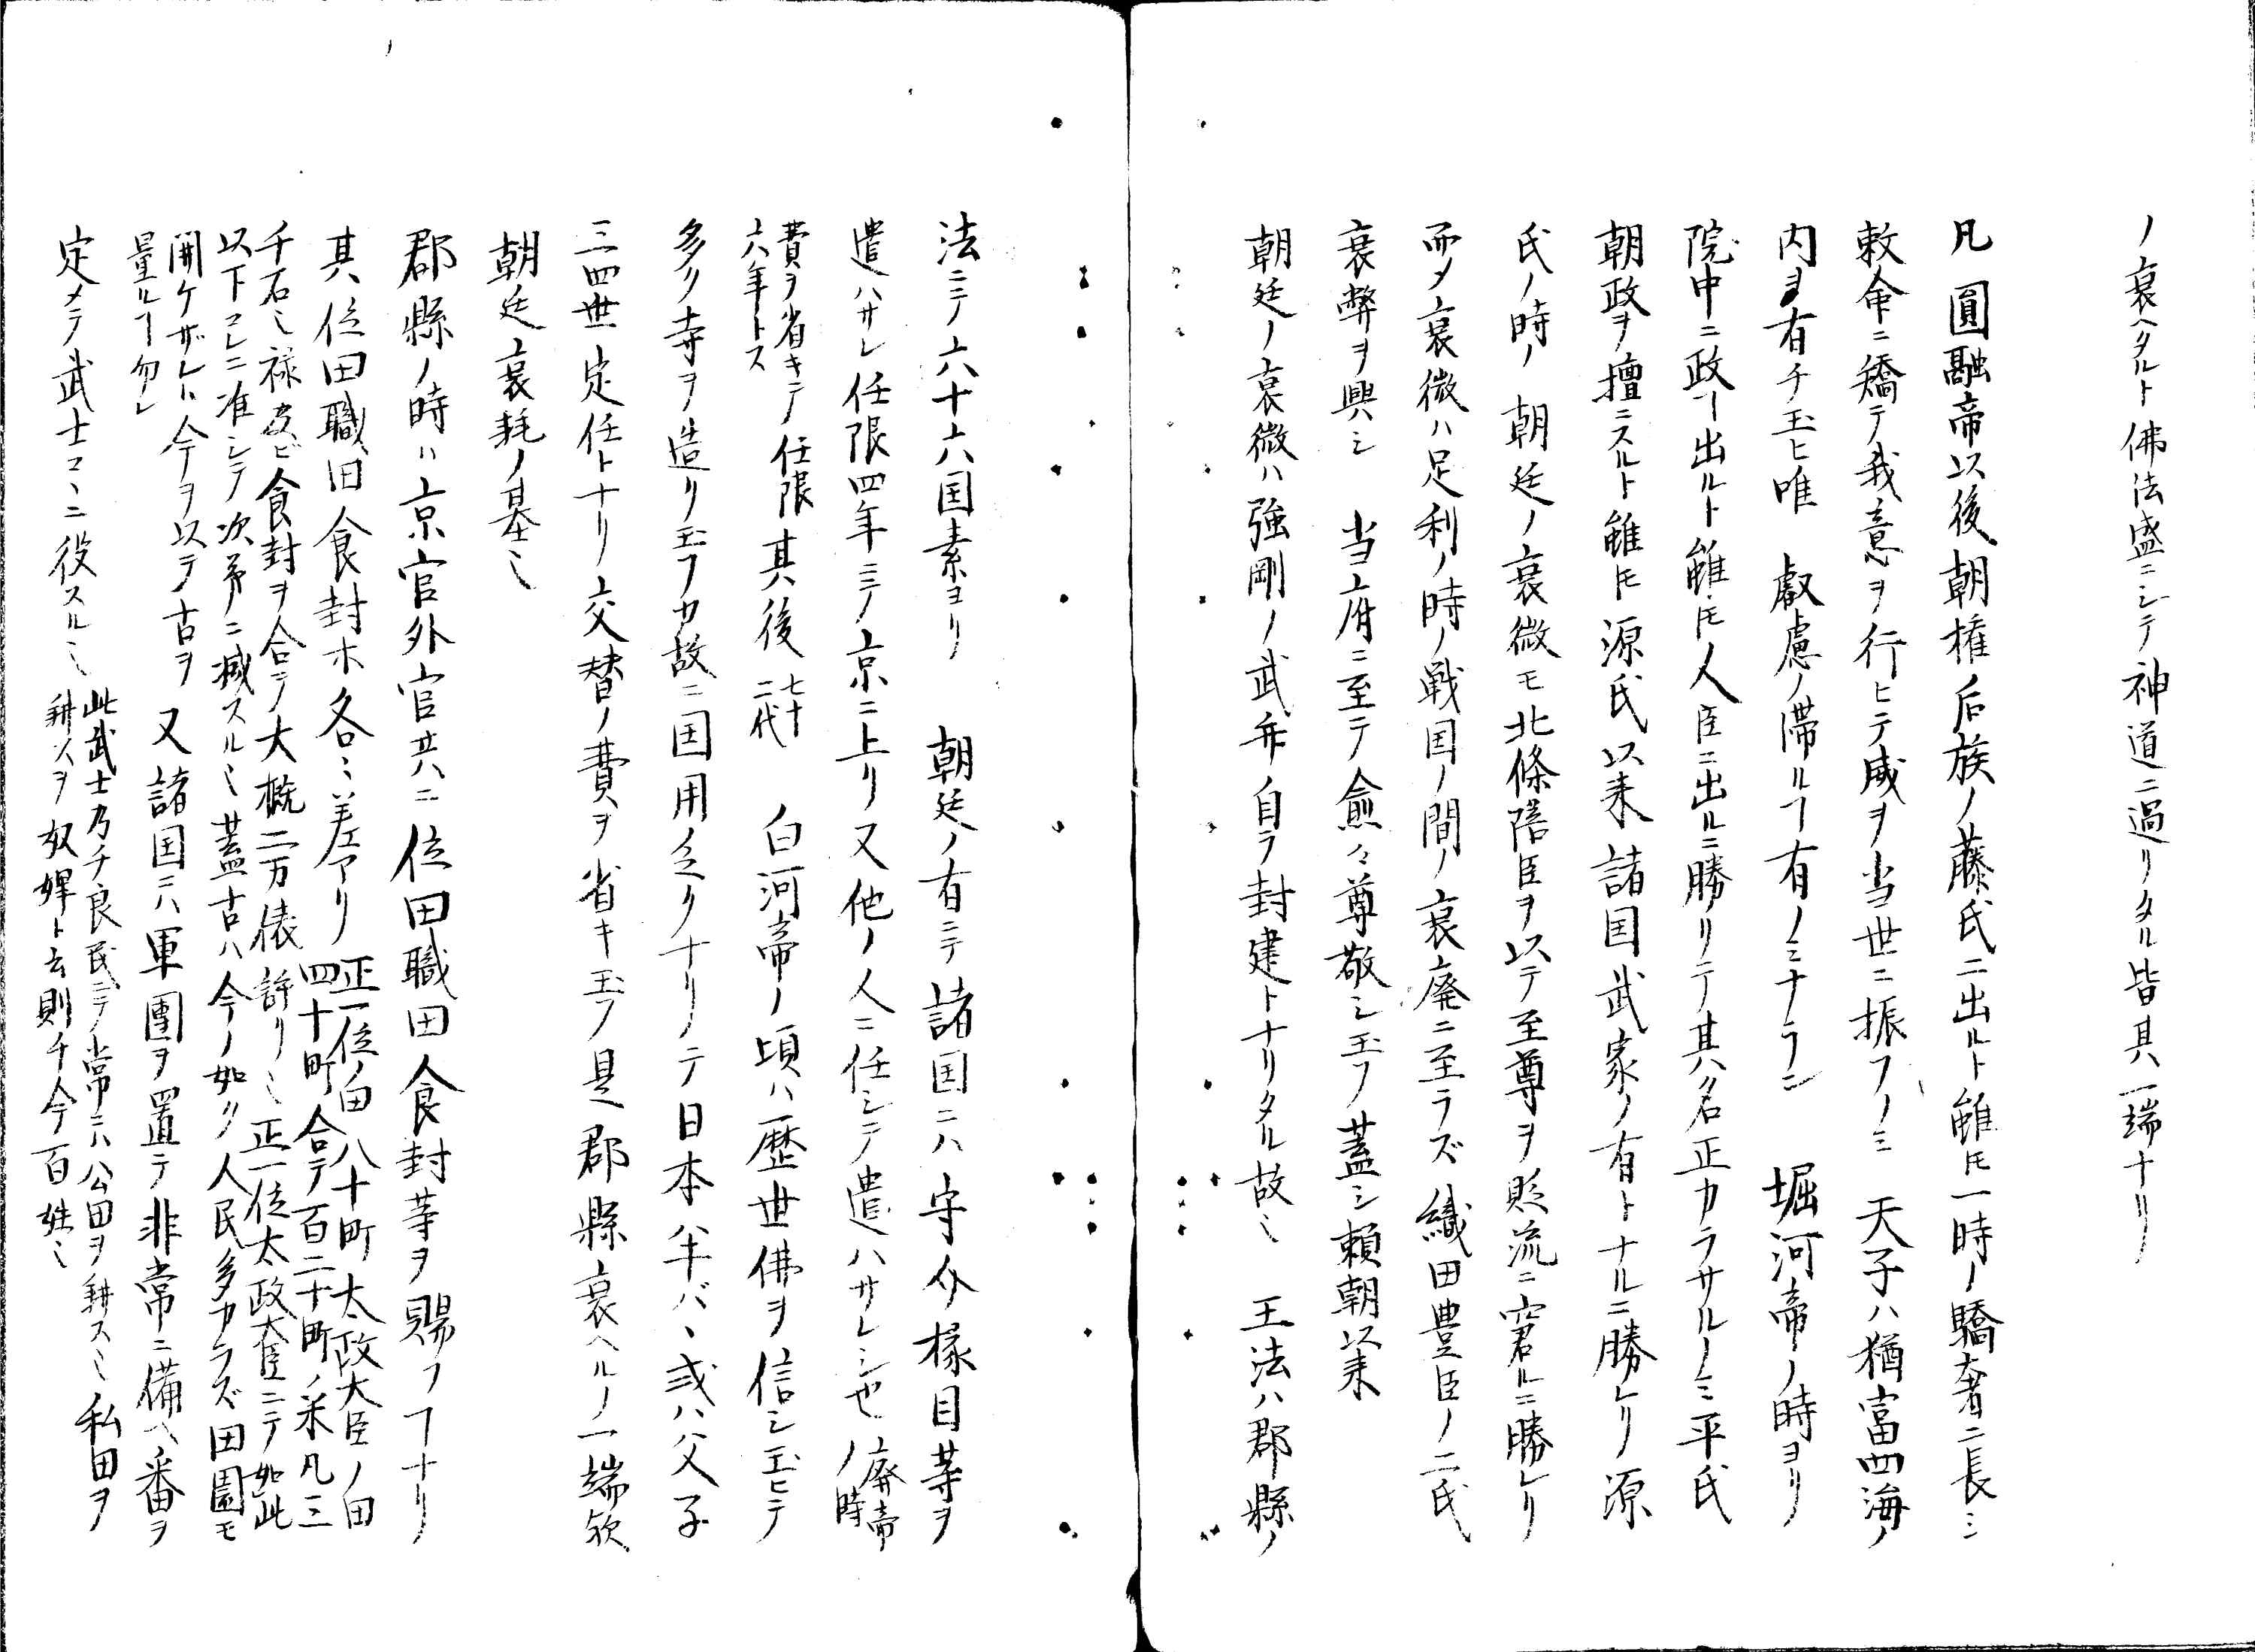 ノ衰ヘタルト佛法盛ニシテ神道ニ過リタル皆其一端ナリ
凡圓融帝以後朝権后族ノ藤氏ニ出ルト雖𪜈一時ノ驕奢ニ長シ
敕命ニ矯テ我意ヲ行ヒテ威ヲ当世ニ振フノミ　天子ハ猶富四海ノ
内ヲ有チ玉ヒ唯　叡慮ノ滞ルヿ有ノミナラン　堀河帝ノ時ヨリ
院中ニ政ヿ出ルト雖𪜈人臣ニ出ルニ勝リテ其名正カラサルノミ平氏
朝政ヲ擅ニスルト雖𪜈源氏以来諸国武家ノ有トナルニ勝レリ源
氏ノ時ノ朝廷ノ衰微モ北條陪臣ヲ以テ至尊ヲ貶流ニ窘ルニ勝レリ
而メ衰微ハ足利ノ時ノ戦国ノ間ノ衰廃ニ至ラズ織田豊臣ノ二氏
衰弊ヲ興シ　当府ニ至テ愈々尊敬シ玉フ蓋シ頼朝以来
朝廷ノ衰微ハ強剛ノ武弁自ラ封建トナリタル故ミ　王法ハ郡縣ノ
法ニテ六十六国素ヨリ　朝廷ノ有ニテ諸国ニハ守介掾目等ヲ
遣ハサレ任限四年ニテ京ニ上リ又他ノ人ニ任シテ遣ハサレシ也廃帝
ノ時
費ヲ省キテ任限
六年トス
其後七十
二代
白河帝ノ頃ハ歴世佛ヲ信シ玉ヒテ
多ク寺ヲ造リ玉フカ故ニ国用乏クナリテ日本半バヽ或ハ父子
三四世定任トナリ交替ノ費ヲ省キ玉フ是郡縣衰ヘルノ一端欤
朝廷衰耗ノ基ミ
郡縣ノ時ハ京官外官共ニ位田職田食封等ヲ賜フヿナリ
其位田職田食封ホ各ミ差アリ正一位ノ田八十町太政大臣ノ田
四十町合テ百二十町ノ米凡三
千石ミ禄及ビ食封ヲ合テ大概二万俵許リミ正一位太政大臣ニテ如此
以下コレニ准シテ次第ニ減スルミ蓋古ハ今ノ如ク人民多カラズ田園モ
開ケザレハ今ヲ以テ古ヲ
量ルヿ勿レ
又諸国ニハ軍團ヲ置テ非常ニ備ヘ番ヲ
定メテ武士コヽニ役スルミ此武士乃チ良民ニテ常ニハ公田ヲ耕スミ私田ヲ
耕スヲ奴婢ト云則チ今百姓ミ